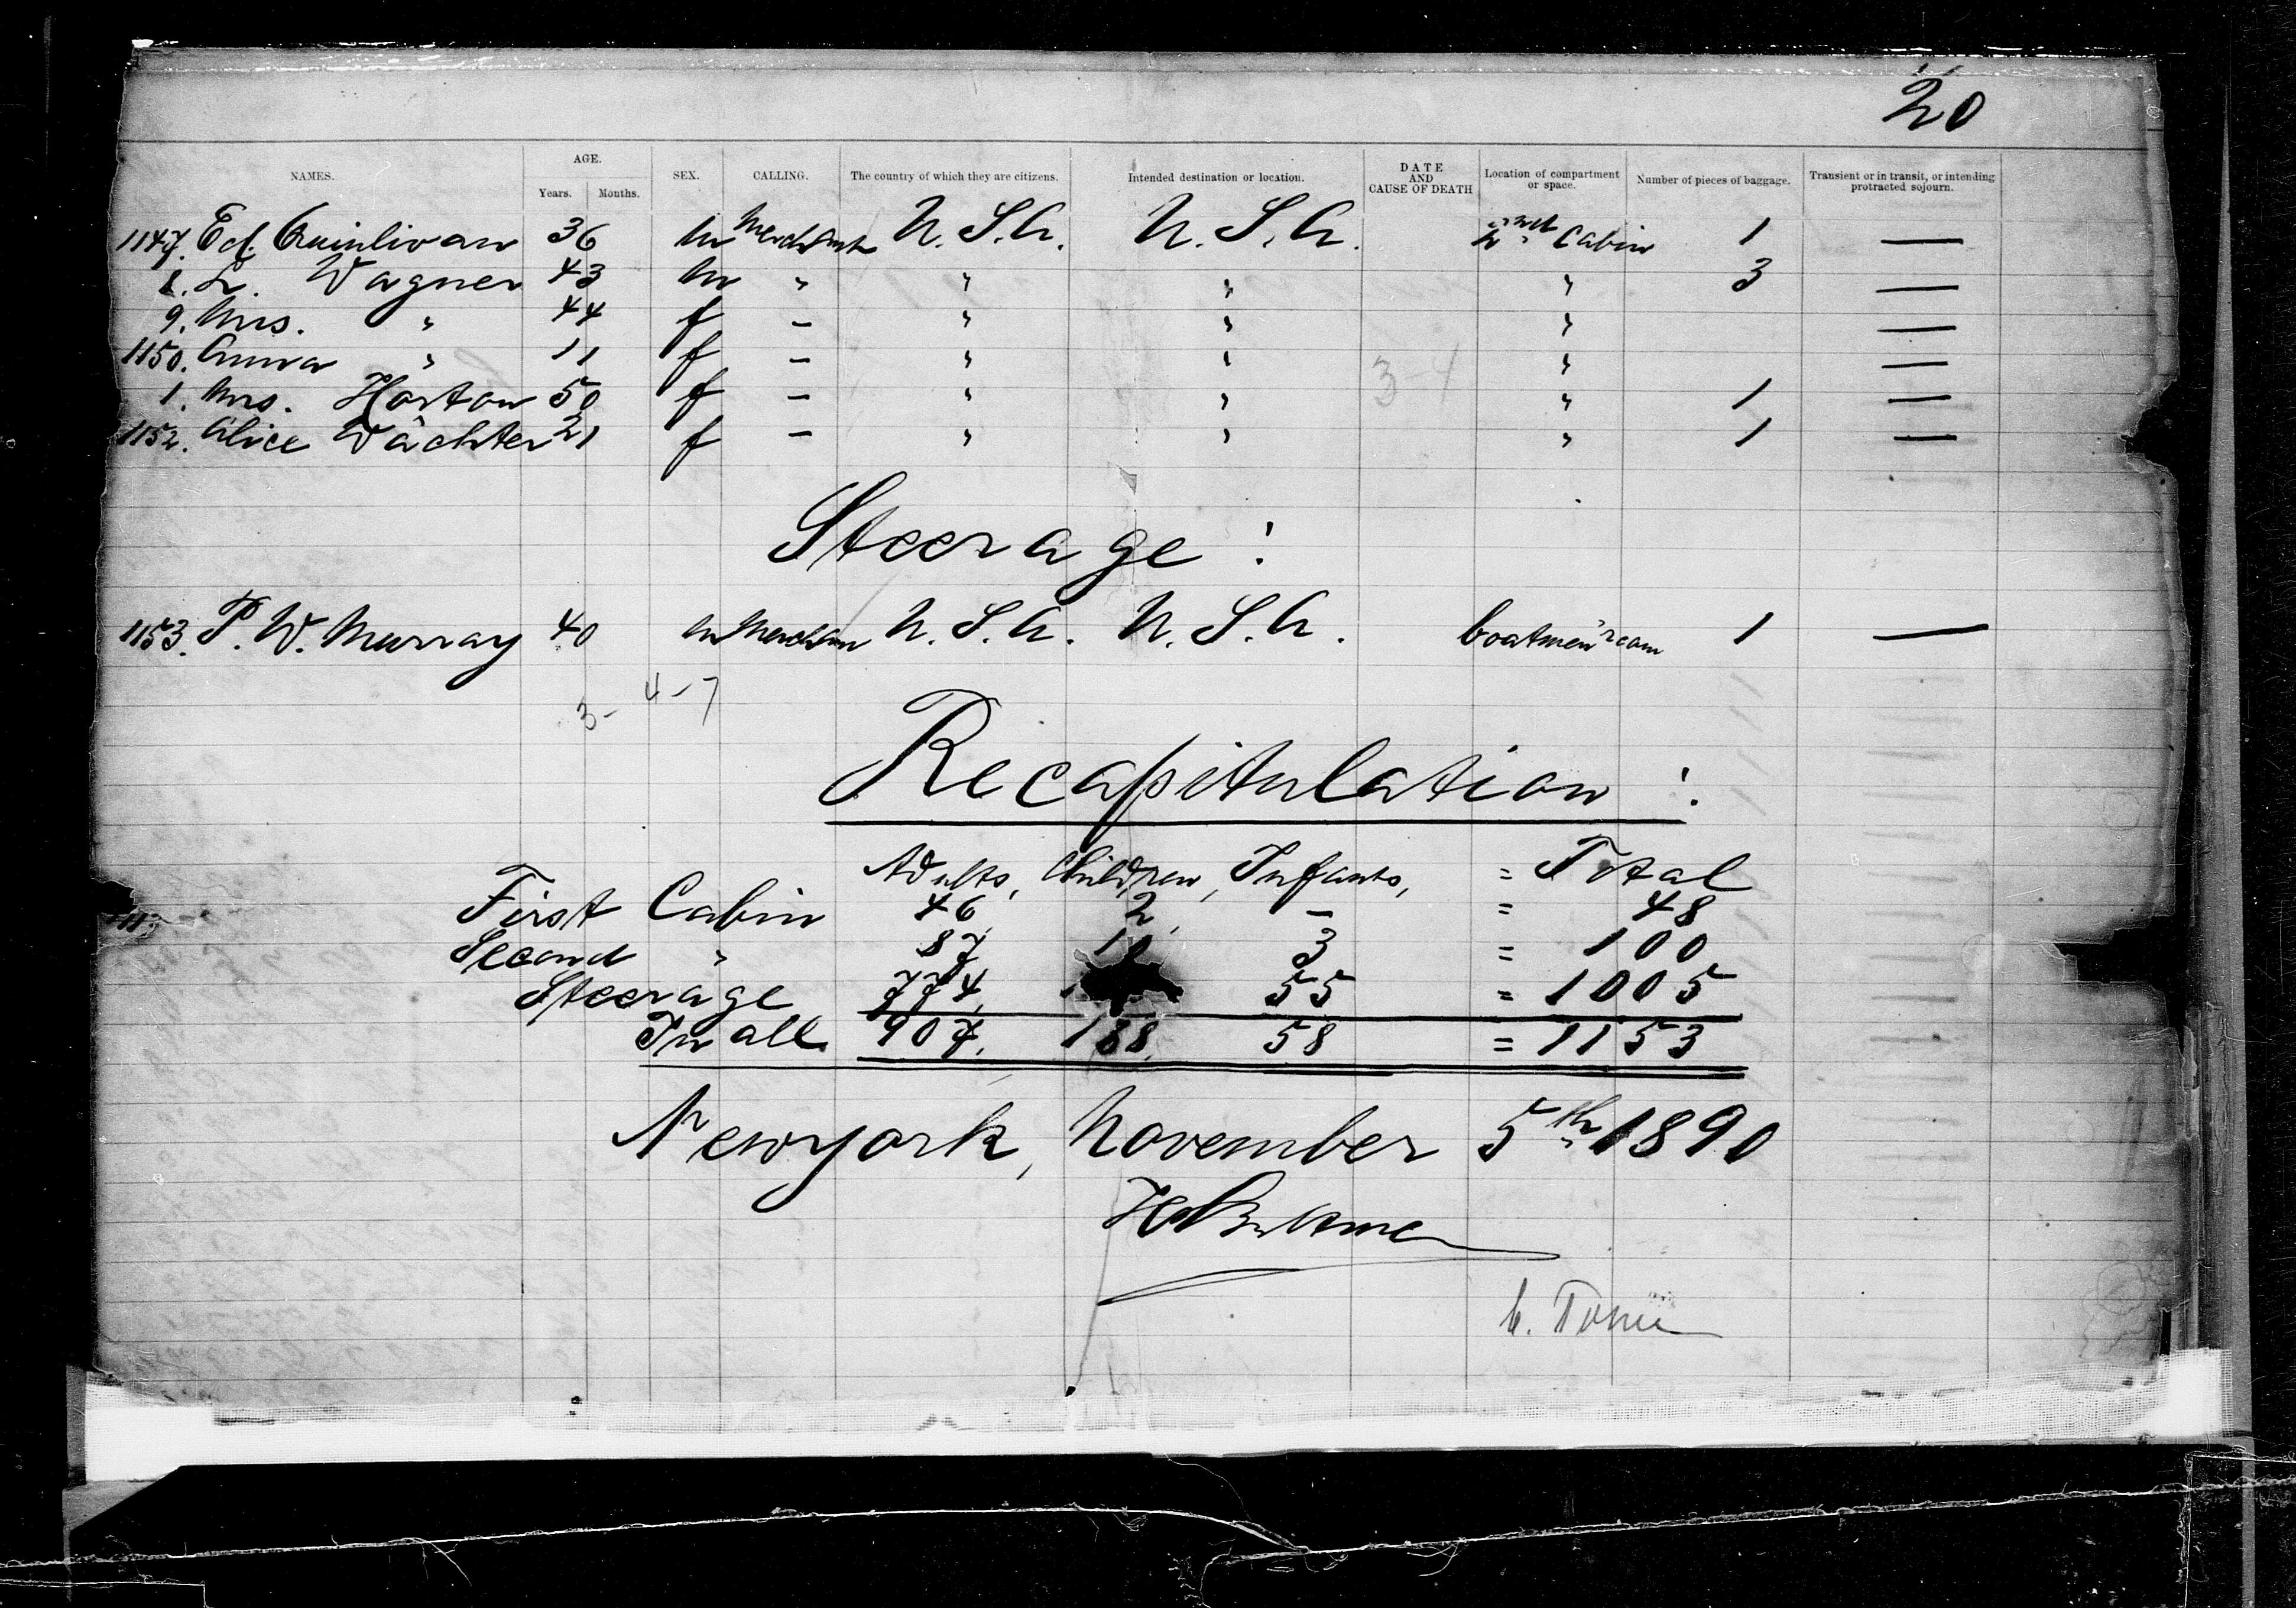 20
NAMES. AGE. Years. Months. SEX. CALLING. The country of which they are citizens. Intended destination or location. DATE AND CAUSE OF DEATH Location of compartment or space. Number of pieces of baggage. Transient or in transit, or intending protracted sojourn.
1147. Ed. Quinlivan 36 m Merchant U. S. A. U. S. A. 2nd Cabin 1 —
8. L. Wagner 43 m " " " " 3 —
9. Mrs. " 44 f – " " " —
1150. Anna " 11 f – " " " —
1. Mrs. Horton 50 f – " " " 1 —
1152. Alice Wächter 21 f – " " " 1 —
3–4
Steerage :
1153. P. W. Murray 40 m Merchan U. S. A. U. S. A. boatmen's room 1 —
3–4–7
Recapitulation :
Adults, Children, Infants, = Total
First Cabin 46, 2, – = 48
Second " 87, 10 3 = 100
Steerage 774, 55 = 1005
In all 907, 188, 58 = 1153
Newyork, November 5th 1890